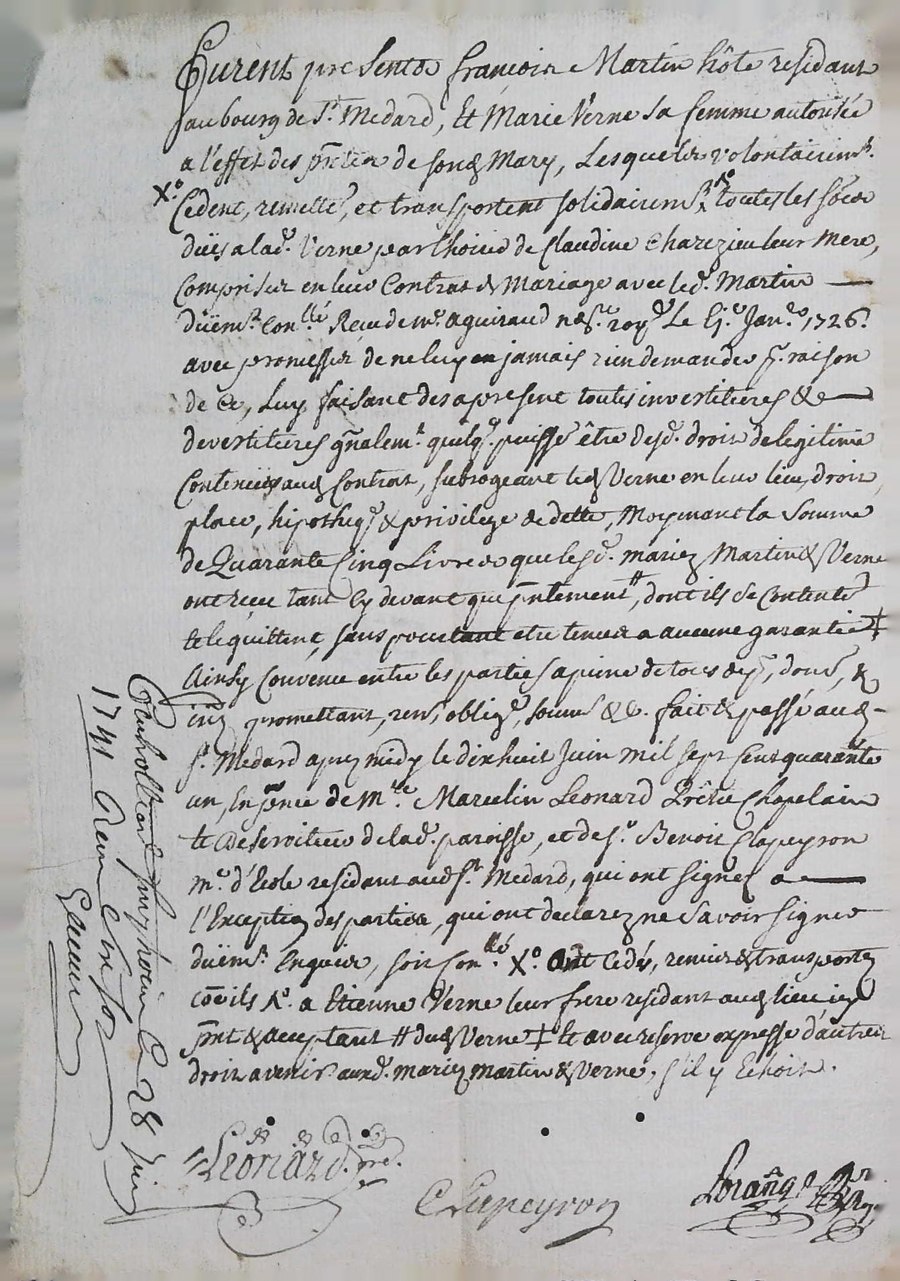 Furent presents françois Martin hôte residant
au bourg de St. Medard, Et Marie Verne sa femme autorisée
a l'effet des pntes de sond. Mary, Lesquels volontairemt.
Xo. Cedent, remette, et transportent solidairemt. Xo toutes les so͞es
düës a lad. Verne par l'hoirie de Claudine Charezieu leur Mere,
Comprises en leur Contrat de Mariage avec led. Martin
düemt. Conllé Receu de me. aguiraud no.re roy. Le Ej.e Janro. 1726.
avec promesses de ne luy en jamais rien demander p. raison
de Ce, Luy faisant des a present toutes investitures &
devestitures gnalemt. quelq. puisse être desd. droits de legitime
Contenües aud. Contrat, subrogeant led. Verne en leur lieu, droit,
place, hipotheq. & privilege de dette, Moyenant la Somme
de Quarante Cinq Livres que lesd. mariez Martin & Verne
ont receu tant Cy devant que pntement #, dont ils se Contente
& le quittent, sans pourtant etre tenus a aucune garantie ‡
Ainsy Convenu entre les parties a peine de tous dep., dom., &
promettant, ren, oblig., soum. &c. fait & passé aud.
St. Medard apres midy le dixhuit Juin mil sept Cent quarante
un, En p͞nce de Mre. Marcelin Leonard Prêtre Chapelain
& Deserviteur de lad. paroisse, et de Sr. Benoit Clapeyron
me. d'Ecole residant aud. St. Medard, qui ont signé a
l'Exception des parties, qui ont declarez ne Savoir signer
düemt. Enquis, soit Conllé. Xo. Ont Cedé, remis & transportez
Co͞e ils Xo. a Etienne Verne leur frere residant aud. lieu icy
pnt & acceptant # dud. Verne ‡ & avec reserve expresse d'autres
droits avenir auxd. mariez Martin & Verne, s'il y Echoit.
Leonard. pre.
Clapeyron
Controllé a St. Symphorien le 28 Juin
1741 Receu